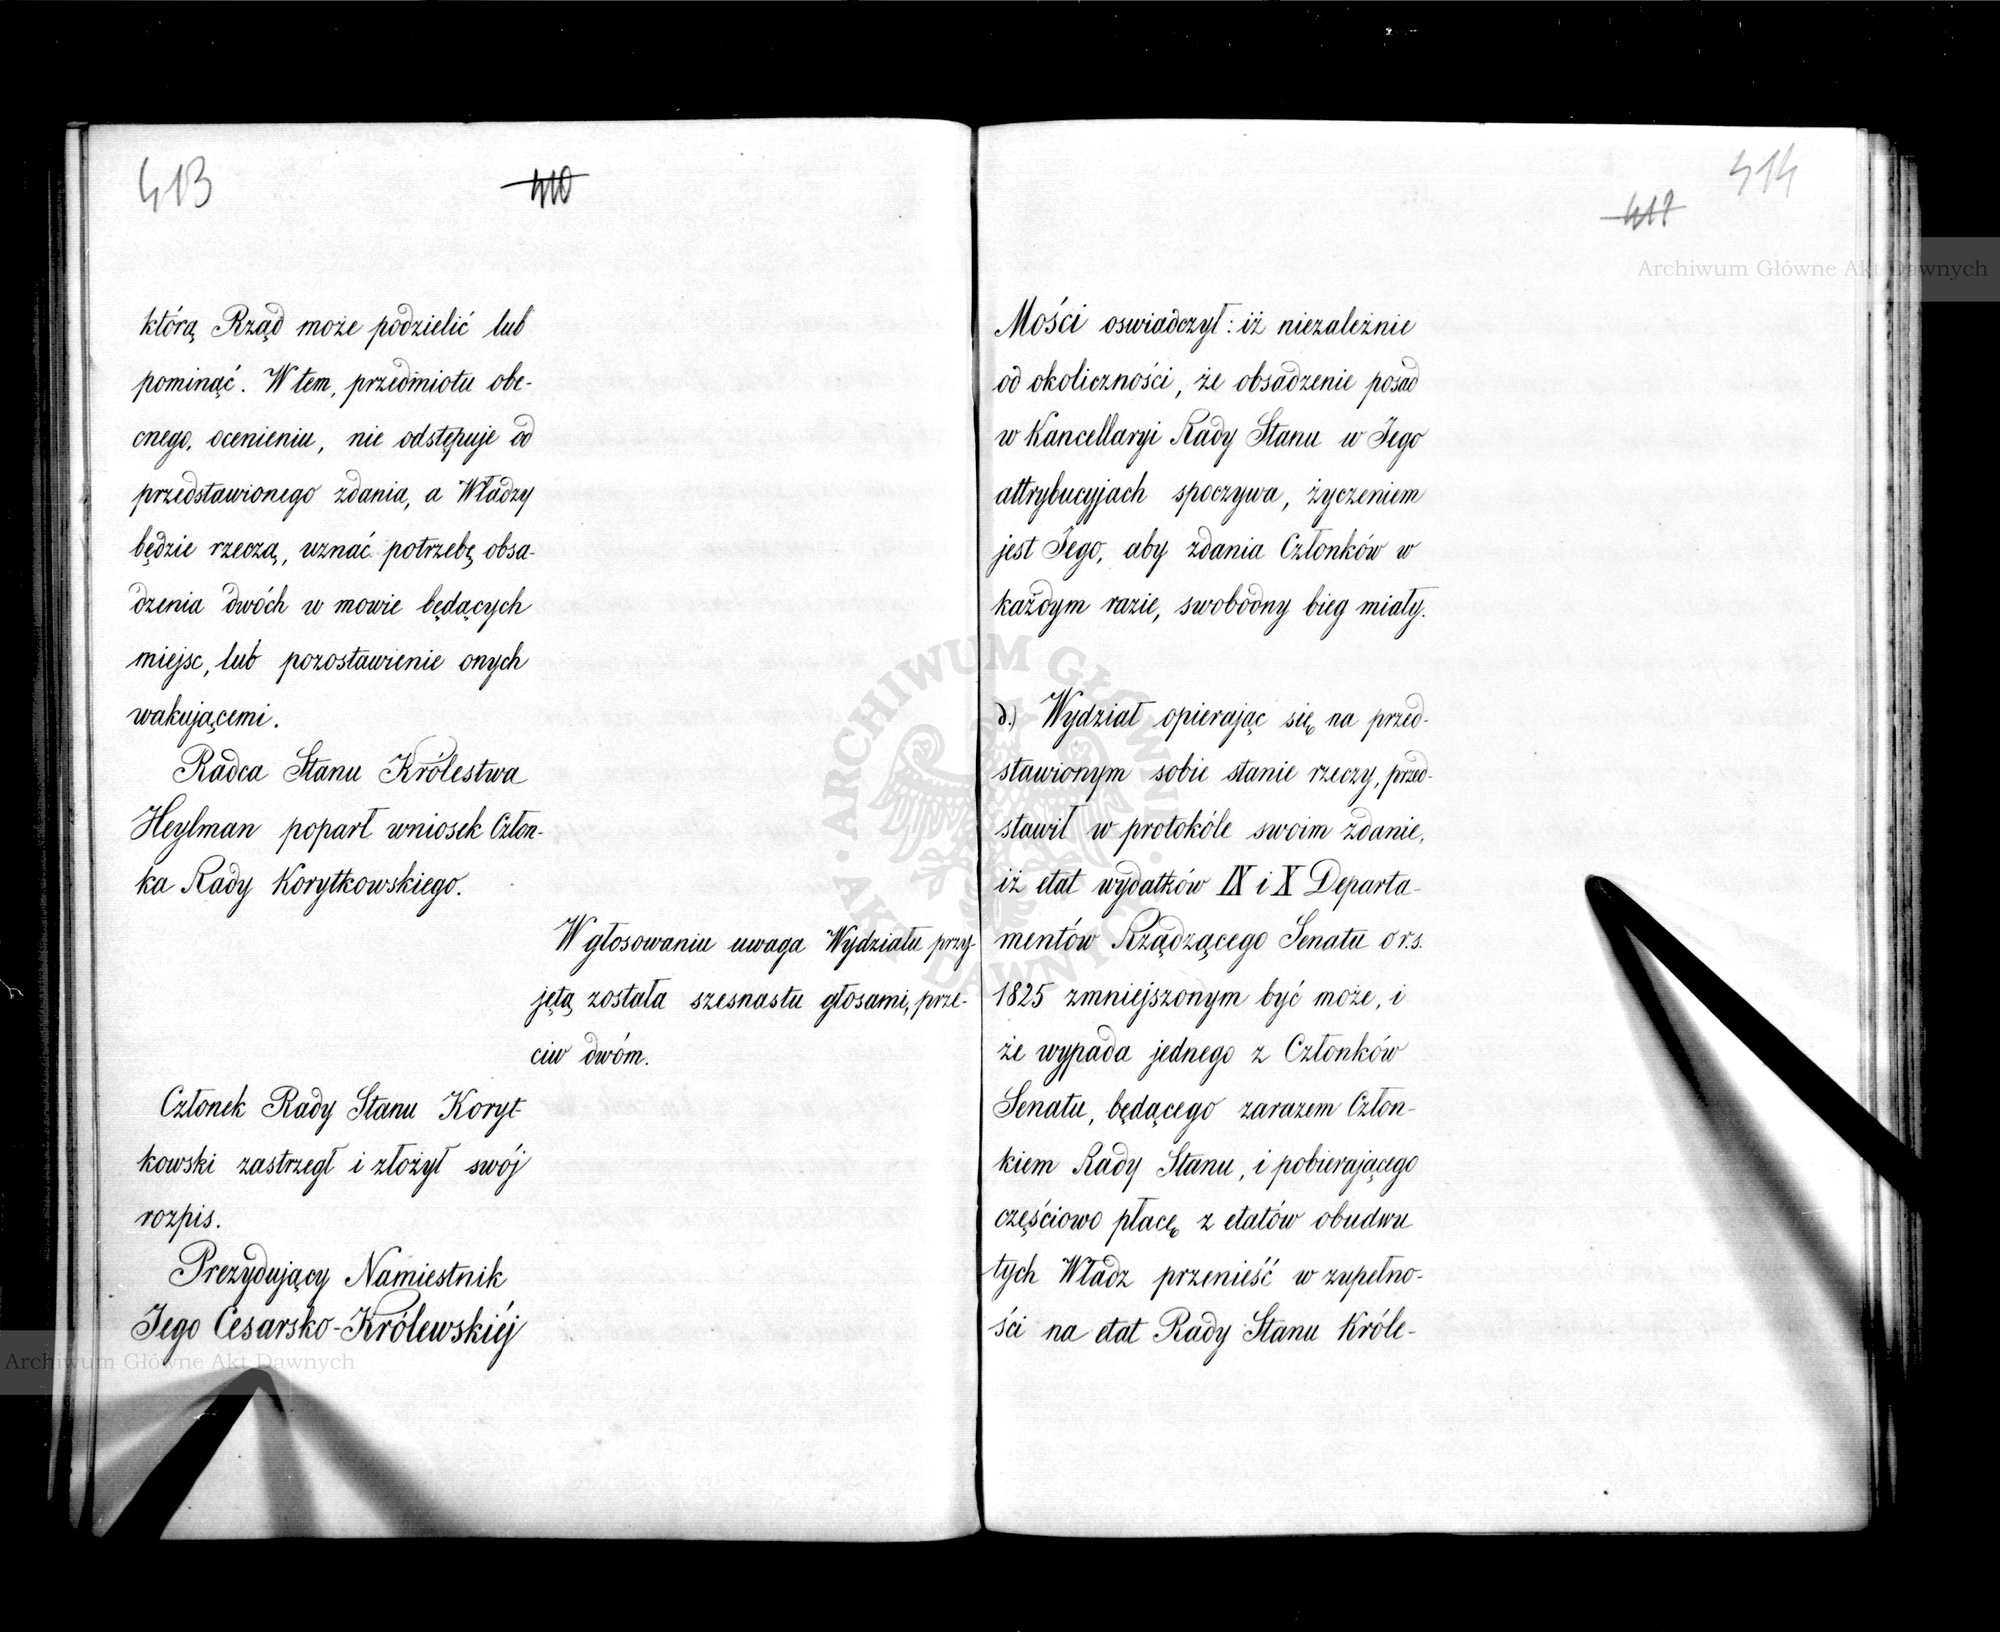 413
410
którą Rząd może podzielić lub
pominąć. W tem, przedmiotu obe-
cnego, ocenieniu, nie odstępuje od
przedstawionego zdania, a Władzy
będzie rzeczą, uznać potrzebę obsa-
dzenia dwóch w mowie będących
miejsc, lub pozostawienie onych
wakującemi.
Radca Stanu Królestwa
Heylman poparł wniosek Człon-
ka Rady Korytkowskiego.
W głosowaniu uwaga Wydziału przy-
jętą została szesnastu głosami, prze-
ciw dwóm.
Członek Rady Stanu Koryt-
kowski zastrzegł i złożył swój
rozpis.
Prezydujący Namiestnik
Jego Cesarsko-Królewskiéj
Archiwum Główne Akt Dawnych
414
Archiwum Główne Akt Dawnych
Mości oswiadczył: iż niezależnie
od okoliczności, że obsadzenie posad
w Kancellaryi Rady Stanu w Jego
attrybucyjach spoczywa, życzeniem
jest Jego, aby zdania Członków w
każdym razie, swobodny bieg miały.
d.) Wydział opierając się na przed-
stawionym sobie stanie rzeczy, przed-
stawił w protokóle swoim zdanie,
iż etat wydatków IX i X Departa-
mentów Rządzącego Senatu o rs.
1825 zmniejszonym być może, i
że wypada jednego z Członków
Senatu, będącego zarazem Człon-
kiem Rady Stanu, i pobierającego
częściowo płacę z etatów obudwu
tych Władz przenieść w zupełno-
ści na etat Rady Stanu Króle-
ARCHIWUM GŁÓWNE AKT DAWNYCH